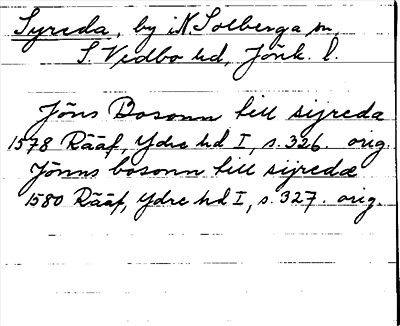 Syreda, by i N Solberga sn,
S. Vedbo hd, Jönk. l.
Jöns Bosonn till sijreda
1578 Rääf, Ydre hd I, s. 326. orig.
Jönns bosonn till sijredæ
1580 Rääf, Ydre hd I, s. 327. orig.